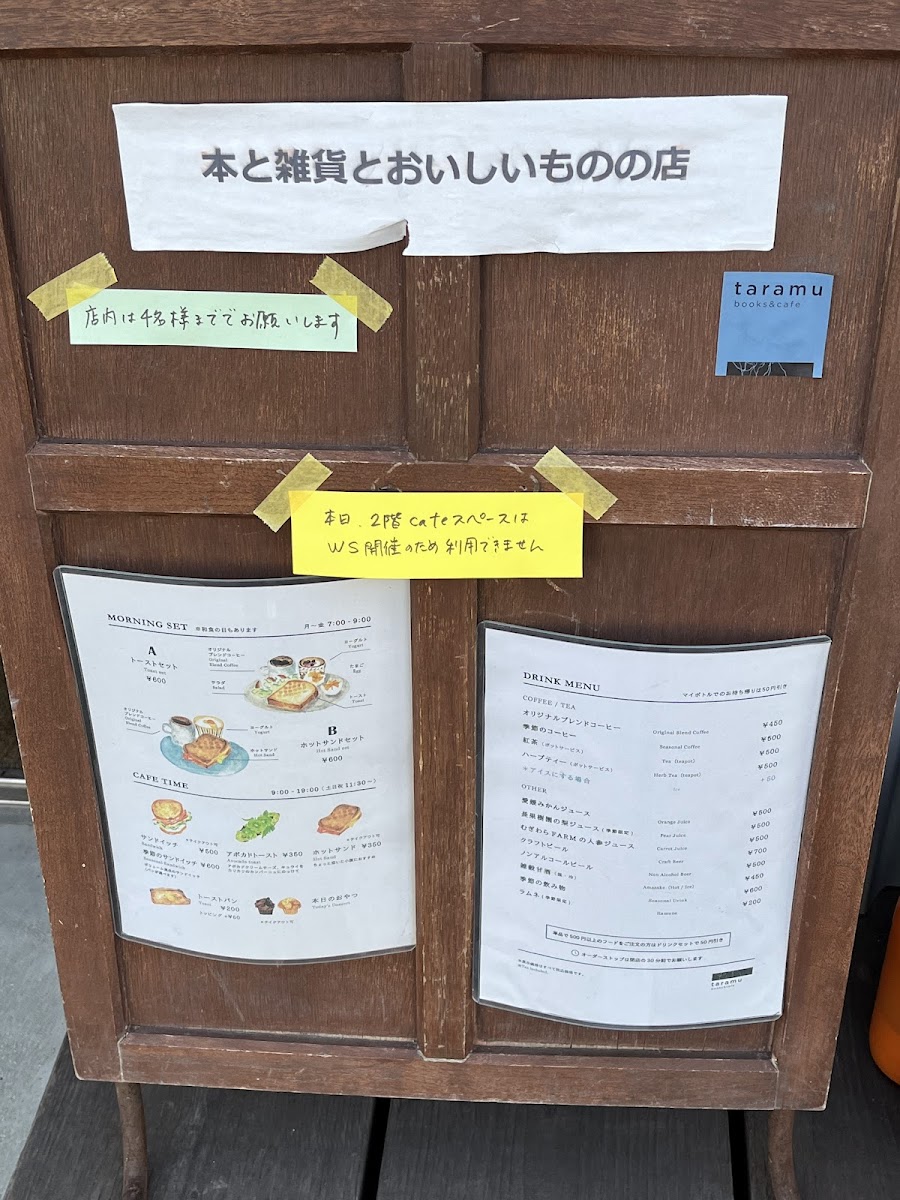 本と雑貨とおいしいものの店
店内は4名様まででお願いします
taramu
books&cafe
本日、2階cafeスペースは
WS開催のため利用できません
MORNING SET ※和食の日もあります 月ー金 7:00 - 9:00
A
トーストセット
Toast set
¥600
オリジナル
ブレンドコーヒー
Original
Blend Coffee
サラダ
Salad
ヨーグルト
Yogurt
たまご
Egg
トースト
Toast
オリジナル
ブレンドコーヒー
Original
Blend Coffee
ヨーグルト
Yogurt
ホットサンド
Hot Sand
B
ホットサンドセット
Hot Sand set
¥600
CAFE TIME 9:00 - 19:00 (土日祝 11:30〜)
サンドイッチ ¥500
Sandwich
季節のサンドイッチ ¥600
Seasonal Sandwich
※テイクアウト可
アボカドトースト ¥350
Avocado toast
※テイクアウト可
ホットサンド ¥350
Hot Sand
トーストパン
Toast ¥200
トッピング +¥50
本日のおやつ
Today's Desserts
※テイクアウト可
DRINK MENU マイボトルでのお持ち帰りは50円引き
COFFEE / TEA
オリジナルブレンドコーヒー Original Blend Coffee ¥450
季節のコーヒー Seasonal Coffee ¥500
紅茶(ポットサービス) Tea (teapot) ¥500
ハーブティー(ポットサービス) Herb Tea (teapot) ¥500
※アイスにする場合 Ice +50
OTHER
愛媛みかんジュース Orange Juice ¥500
果樹園の梨ジュース(季節限定) Pear Juice ¥500
むぎわらFARMの人参ジュース Carrot Juice ¥500
クラフトビール Craft Beer ¥700
ノンアルコールビール Non Alcohol Beer ¥500
雑穀甘酒(温・冷) Amazake (Hot / Ice) ¥450
季節の飲み物 Seasonal Drink ¥600
ラムネ(季節限定) Ramune ¥200
単品で500円以上のフードをご注文の方はドリンクセットで50円引き
オーダーストップは閉店の30分前でお願いします
taramu